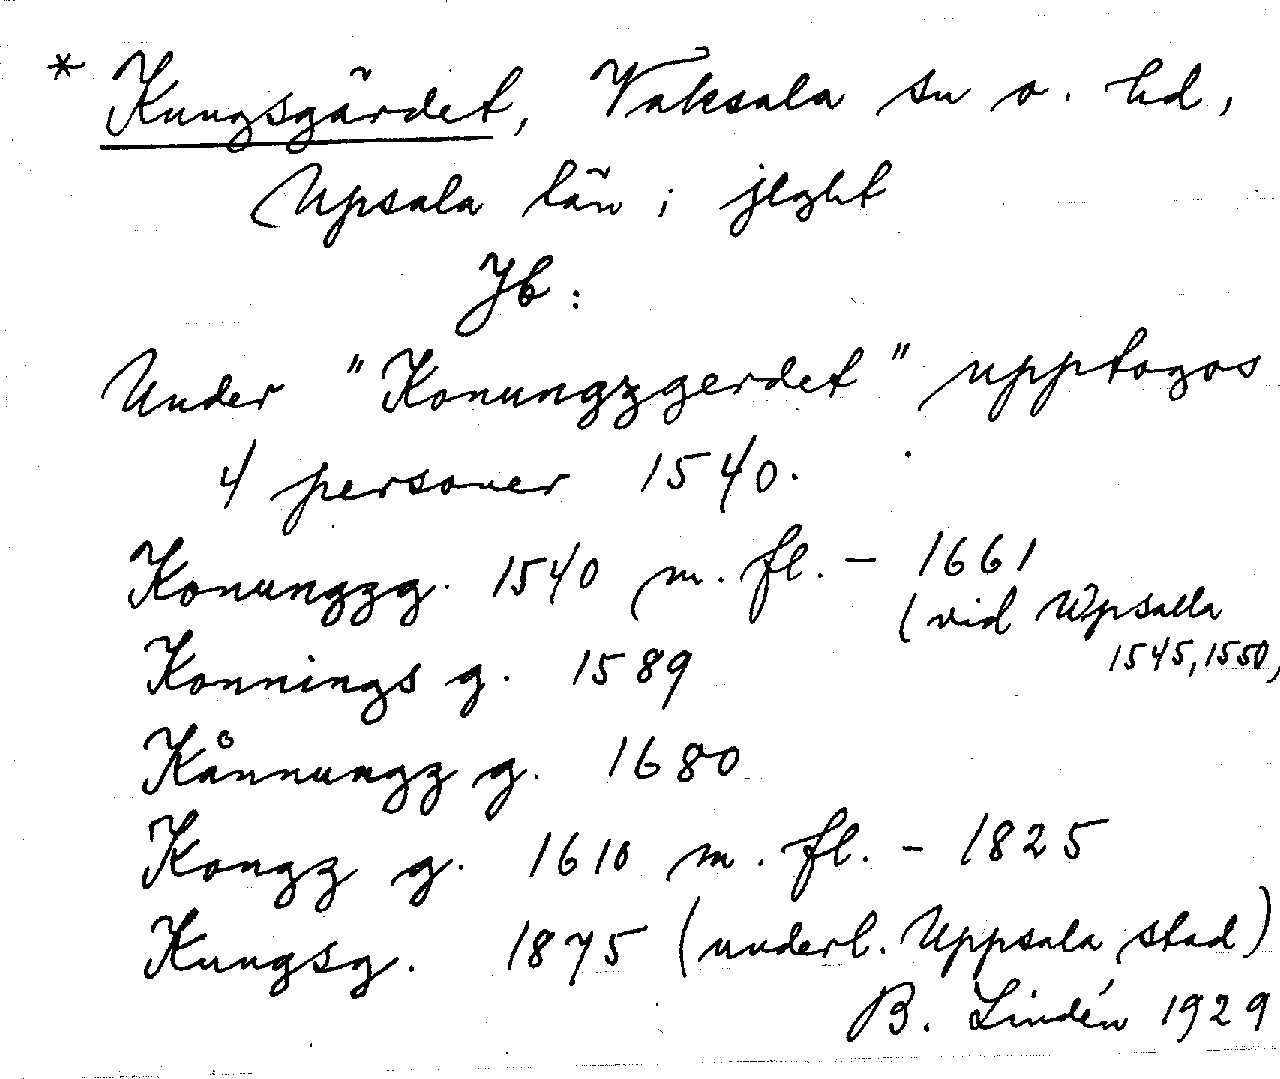 * Kungsgärdet, Vaksala sn o. hd,
Upsala län; jlght
Jb:
Under "Konungzgerdet" upptogos
4 personer 1540.
Konungzg. 1540 m. fl. - 1661
(vid Wpsalla
1545, 1550,
Konnings g. 1589
Kånnungz g. 1680
Kongz g. 1610 m. fl. - 1825
Kungsg. 1875 (underl. Uppsala stad)
B. Lindén 1929